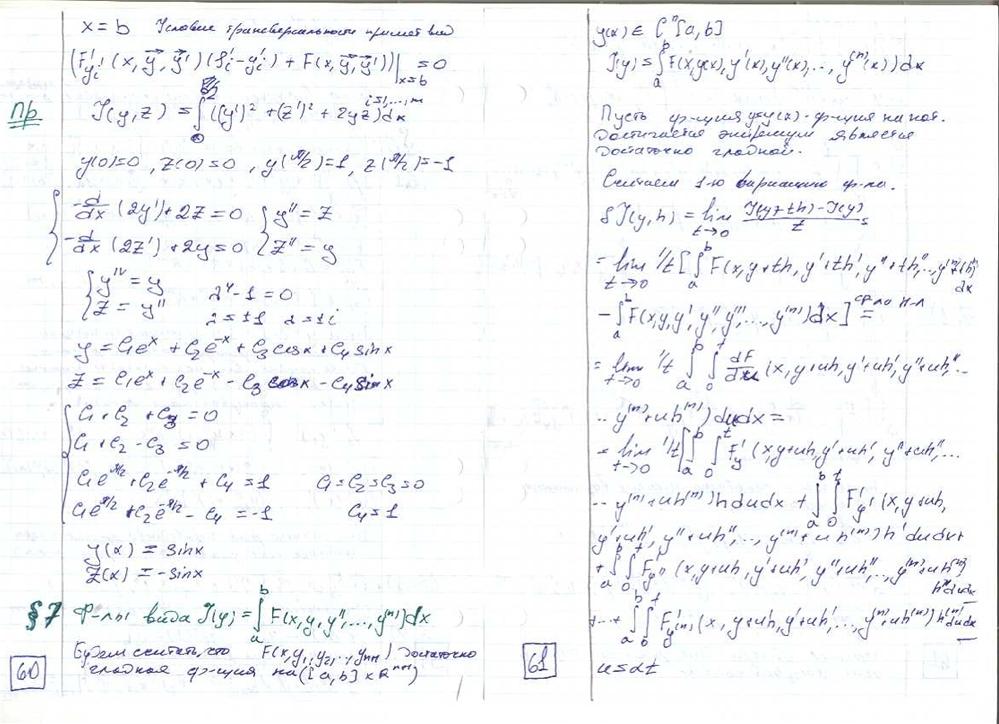 x = b Условие трансверсальности примет вид
(F'_{y_i'}(x, y⃗, y⃗')(φ_i' - y_i') + F(x, y⃗, y⃗'))|_{x=b} = 0
i = 1, ..., m
Пр. J(y, z) = ∫_0^{π/2} ((y')² + (z')² + 2yz)dx
y(0)=0, z(0)=0, y(π/2)=1, z(π/2)=-1
{ -d/dx (2y') + 2z = 0 { y'' = z
-d/dx (2z') + 2y = 0 z'' = y
{ y^{IV} = y
z = y'' λ⁴ - 1 = 0
λ = ±1 λ = ±i
y = C₁e^x + C₂e^{-x} + C₃cosx + C₄sinx
z = C₁e^x + C₂e^{-x} - C₃cosx - C₄sinx
{ C₁ + C₂ + C₃ = 0
C₁ + C₂ - C₃ = 0
C₁e^{π/2} + C₂e^{-π/2} + C₄ = 1 C₁ = C₂ = C₃ = 0
C₁e^{π/2} + C₂e^{-π/2} - C₄ = -1 C₄ = 1
y(x) = sinx
z(x) = -sinx
§7 Ф-лы вида J(y) = ∫_a^b F(x, y, y'', ..., y^{(n)})dx
Будем считать, что F(x, y₁, y₂, ..., y_{n+1}) достаточно
гладкая ф-ция на ([a, b] x R^{n+1})
60
y(x) ∈ C^n[a, b]
J(y) = ∫_a^b F(x, y(x), y'(x), y''(x), ..., y^{(n)}(x))dx
Пусть ф-ция y=y(x) - ф-ция на кот.
достигается экстремум является
достаточно гладкой.
Считаем 1-ю вариацию ф-ла.
δJ(y, h) = lim_{t→0} (J(y+th) - J(y))/t =
= lim_{t→0} 1/t [∫_a^b F(x, y+th, y'+th', y''+th'', ..., y^{(n)}+th^{(n)})
dx
- ∫_a^b F(x, y, y', y'', y''', ..., y^{(n)})dx] = ф-ла Н-Л
= lim_{t→0} 1/t ∫_a^b ∫_0^t dF/du (x, y+uh, y'+uh', y''+uh'', ...
... y^{(n)}+uh^{(n)})dudx =
= lim_{t→0} 1/t [∫_a^b ∫_0^t F'_y (x, y+uh, y'+uh', y''+uh'', ...
... y^{(n)}+uh^{(n)})hdudx + ∫_a^b ∫_0^t F'_{y'} (x, y+uh,
y'+uh', y''+uh'', ..., y^{(n)}+uh^{(n)})h'dudx+
+ ∫_a^b ∫_0^t F'_{y''} (x, y+uh, y'+uh', y''+uh'', ..., y^{(n)}+uh^{(n)})
h''dudx
+...+ ∫_a^b ∫_0^t F'_{y^{(n)}} (x, y+uh, y'+uh', ..., y^{(n)}+uh^{(n)})h^{(n)}dudx
61
u = αt